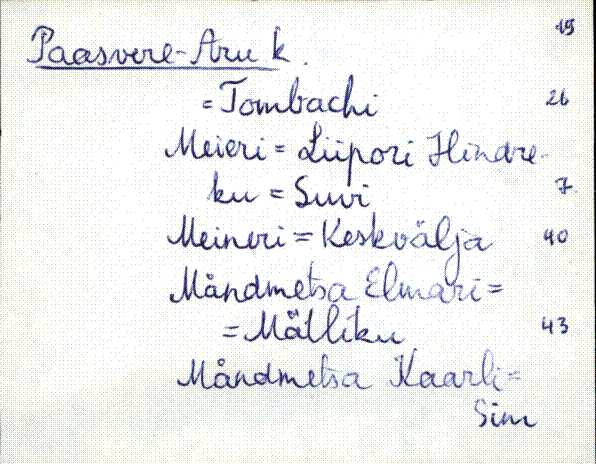 19
Paasvere-Aru k.
=Tombachi 26
Meieri = Liipori Hindre-
ku = Suvi 7.
Meineri = Keskvälja 40
Måndmetsa Elmari =
= Mätliku 43
Måndmetsa Kaarli =